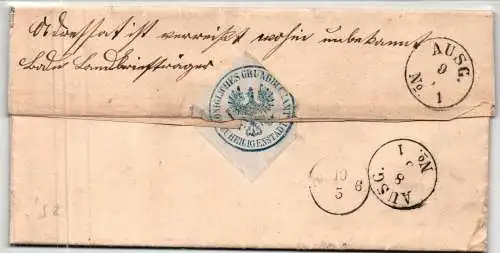 Adressat ist verreißt wohin unbekannt
Bade Landbriefträger
AUSG.
9
1
No. 1
KÖNIGLICHES GRUNDBUCHAMT
HEILIGENSTADT
10
5
8
AUSG.
8
No. 1